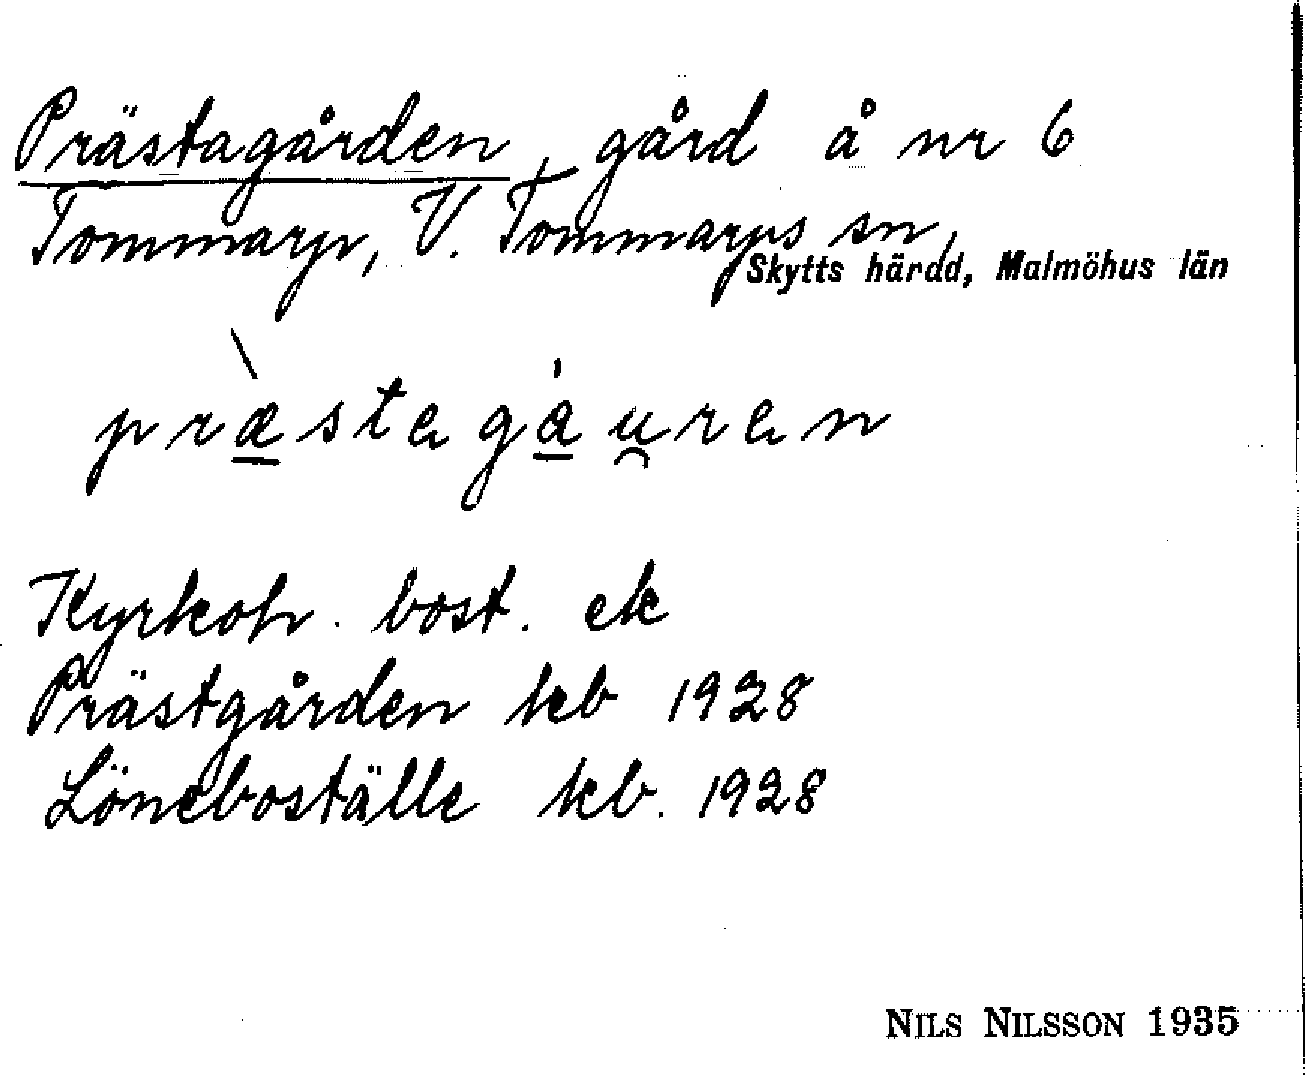 Prästagården, gård å nr 6
Tommarp, V. Tommarps sn,
Skytts härdd, Malmöhus län
præ̱̀stega̱̍u̯ren
Kyrkoh. bost. ek
Prästgården kb 1928
Löneboställe kb. 1928
NILS NILSSON 1935